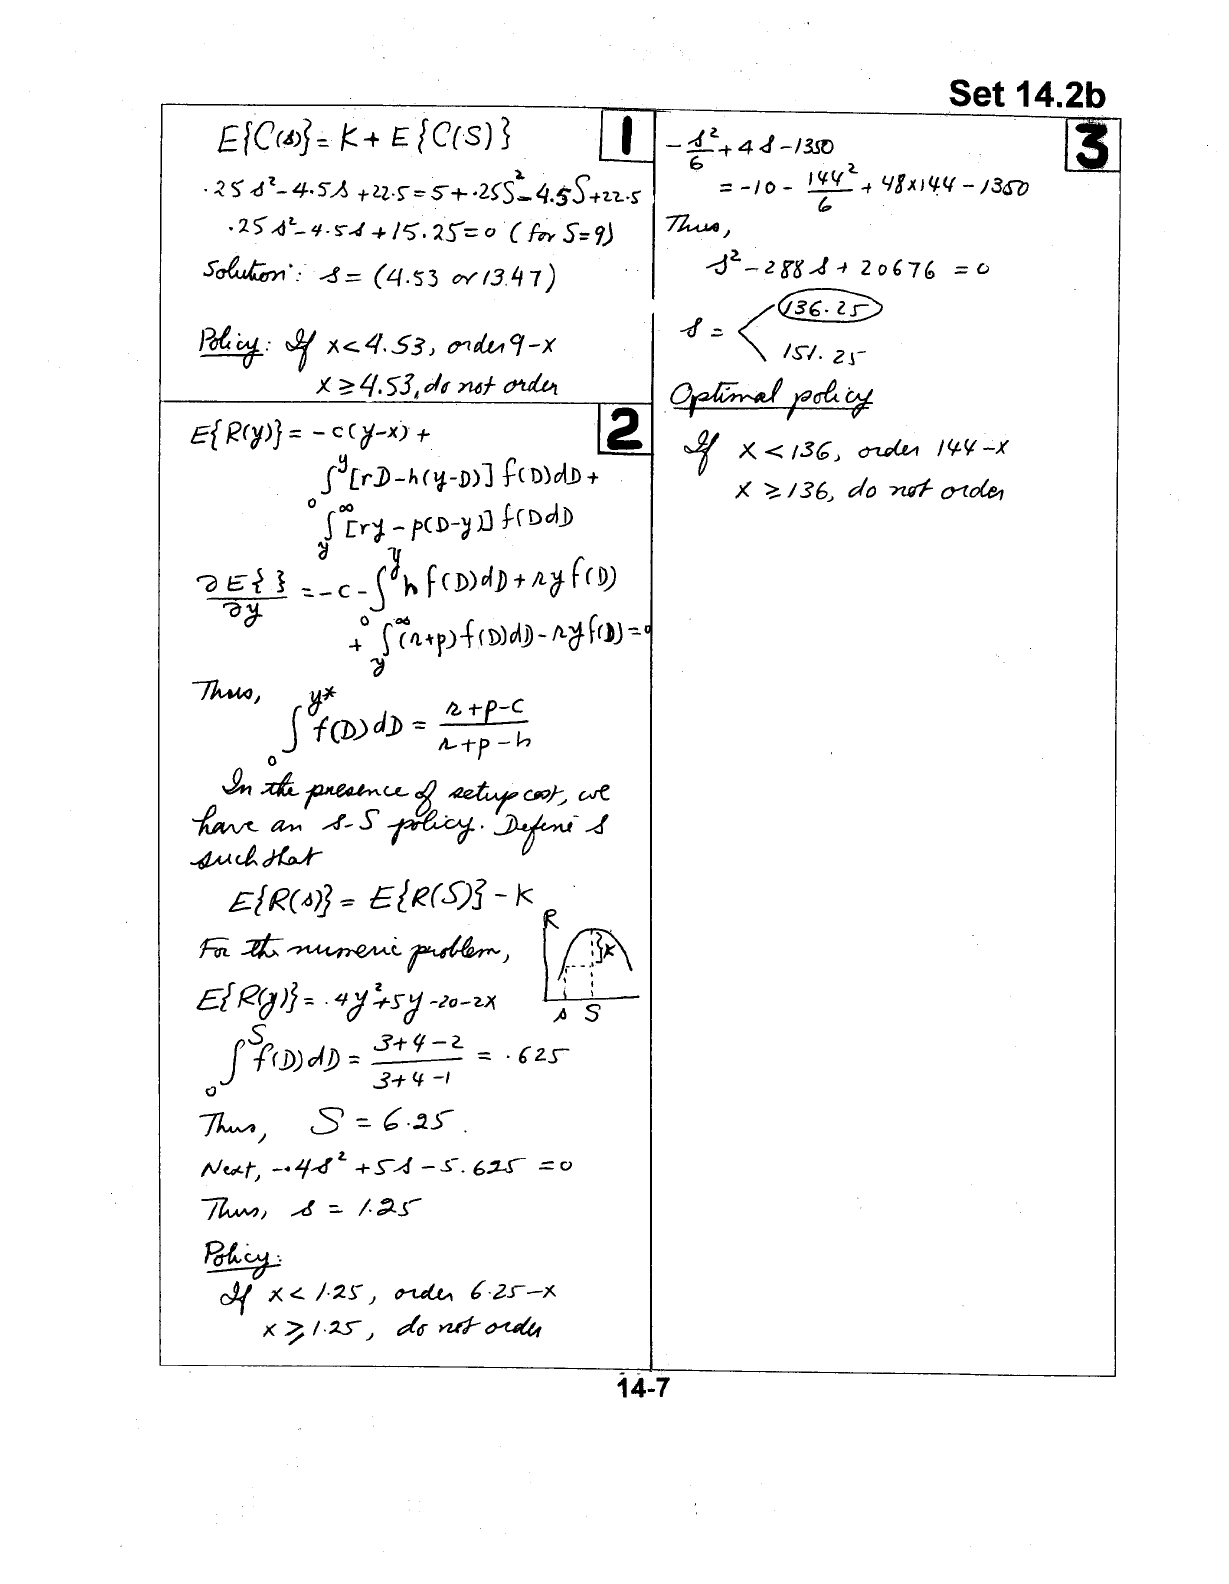 Set 14.2b
1
E{C(s)} = K + E{C(S)}
.25 s² - 4.5s + 22.5 = 5 + .25S² - 4.5S + 22.5
.25 s² - 4.5s + 15.25 = 0 (for S=9)
Solution: s = (4.53 or 13.47)
Policy: If x < 4.53, order 9-x
x ≥ 4.53, do not order
2
E{R(y)} = -c(y-x) +
∫₀^y [rD - h(y-D)] f(D)dD +
∫_y^∞ [ry - p(D-y)] f(D)dD
∂E{ }/∂y = -c - ∫₀^y h f(D)dD + ry f(D)
+ ∫_y^∞ (r+p) f(D)dD - ry f(D) = 0
Thus,
∫₀^{y*} f(D)dD = (r+p-c)/(r+p-h)
In the presence of setup cost, we
have an s-S policy. Define s
such that
E{R(s)} = E{R(S)} - K
For the numeric problem,
R
K
s S
E{R(y)} = .4y² + 5y - 20 - 2x
∫₀^S f(D)dD = (3+4-2)/(3+4-1) = .625
Thus, S = 6.25.
Next, -.4s² + 5s - 5.625 = 0
Thus, s = 1.25
Policy:
If x < 1.25, order 6.25-x
x ≥ 1.25, do not order
3
-s²/6 + 4s - 1350
= -10 - 144²/6 + 48x144 - 1350
Thus,
s² - 288s + 20676 = 0
s = < 136.25
151.25
Optimal policy
If x < 136, order 144-x
x ≥ 136, do not order
14-7